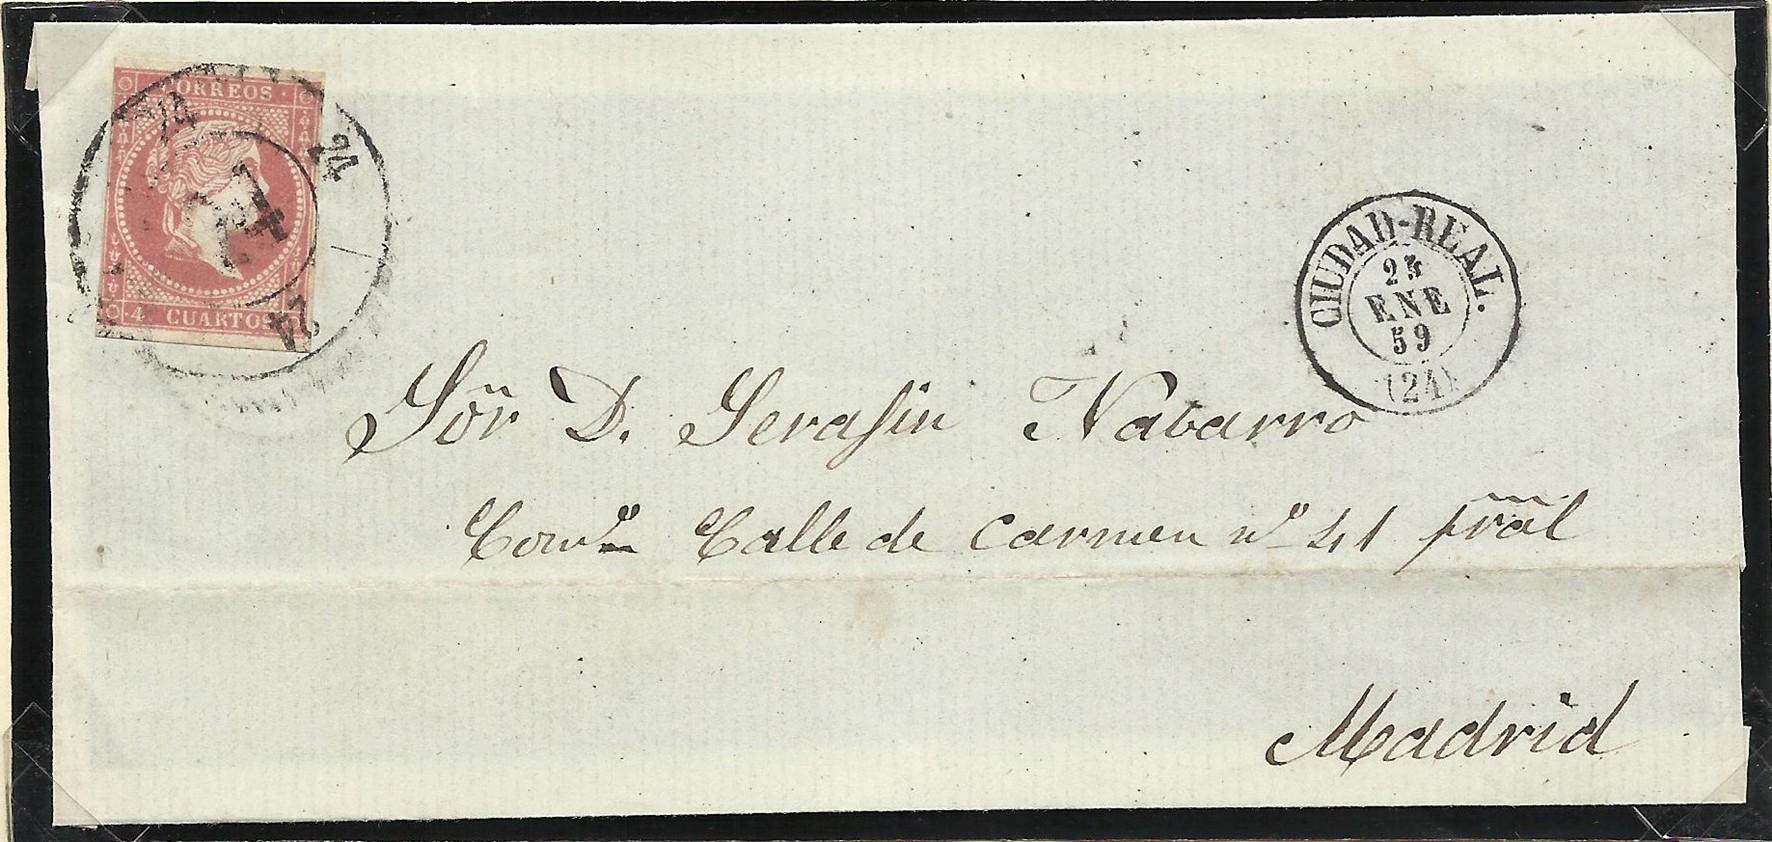 CORREOS
24
24
24
24
4 CUARTOS
CIUDAD-REAL.
25
ENE
59
(24)
Sõr D. Serafin Navarro
Calle de Carmen nº 41 pral
Madrid